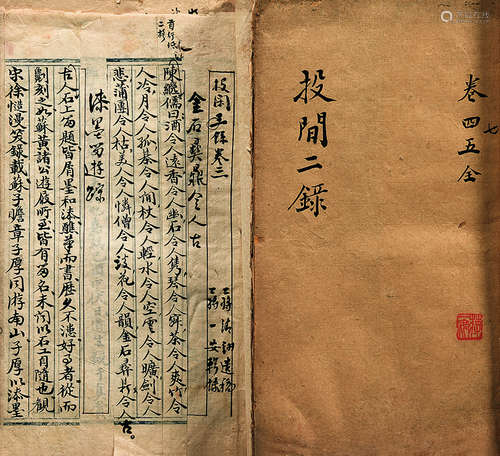 投閒二錄
卷四五全
七
投閒二錄卷三
金石彝鼎令人古
陳繼儒曰酒令人遠香令人幽石令人雋琴令人寂茶令人爽竹令
人冷月令人孤棊令人閒杖令人輕水令人空雪令人曠劍令人
悲蒲團令人枯美人令人憐僧令人淡花令人韻金石彝鼎令人古
漆墨留遊蹤
古人石上留題皆屑墨和漆醮筆而書歷久不漶好事者從而
劖刻之如蘇黃諸公遊屐所至皆有留名未聞以石工自隨也觀
宋徐愷漫笑錄載蘇子瞻章子厚同游南山子厚以漆墨